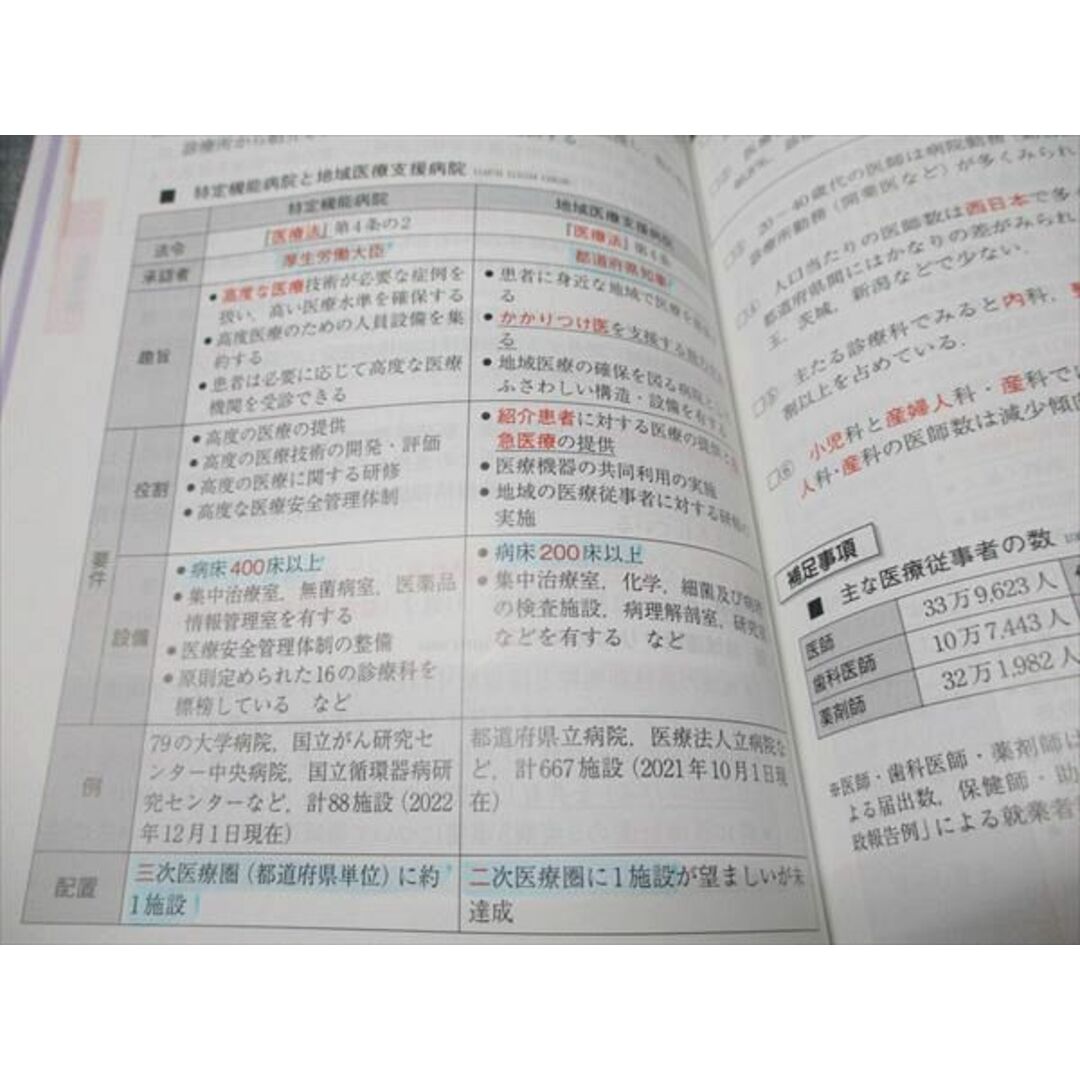 診療所から紹介
■ 特定機能病院と地域医療支援病院
特定機能病院
地域医療支援病院
法令
『医療法』第4条の2
『医療法』第4条
承認者
厚生労働大臣
都道府県知事
趣旨
• 高度な医療技術が必要な症例を
扱い，高い医療水準を確保する
• 高度医療のための人員設備を集
約する
• 患者は必要に応じて高度な医療
機関を受診できる
• 患者に身近な地域で医療を
る
• かかりつけ医を支援する
る
• 地域医療の確保を図る病院として
ふさわしい構造・設備を有する
要件
役割
• 高度の医療の提供
• 高度の医療技術の開発・評価
• 高度の医療に関する研修
• 高度な医療安全管理体制
• 紹介患者に対する医療の提供
急医療の提供
• 医療機器の共同利用の実施
• 地域の医療従事者に対する研修の
実施
設備
• 病床400床以上
• 集中治療室，無菌病室，医薬品
情報管理室を有する
• 医療安全管理体制の整備
• 原則定められた16の診療科を
標榜している　など
• 病床200床以上
• 集中治療室，化学，細菌及び病理
の検査施設，病理解剖室，研究室
などを有する　など
例
79の大学病院，国立がん研究セ
ンター中央病院，国立循環器病研
究センターなど，計88施設（2022
年12月1日現在）
都道府県立病院，医療法人立病院な
ど，計667施設（2021年10月1日現
在）
配置
三次医療圏（都道府県単位）に約
1施設
二次医療圏に1施設が望ましいが未
達成
20〜40歳代の医師は病院勤務
診療所勤務（開業医など）が多くみられ
□4 人口当たりの医師数は西日本で多く
都道府県間にはかなりの差がみられ
玉，茨城，新潟などで少ない．
□5 主たる診療科でみると内科，
割以上を占めている．
□6 小児科と産婦人科・産科では
人科・産科の医師数は減少傾向
補足事項
■ 主な医療従事者の数
医師 33万9,623人
歯科医師 10万7,443人
薬剤師 32万1,982人
※医師・歯科医師・薬剤師は
よる届出数，保健師・助
政報告例」による就業者